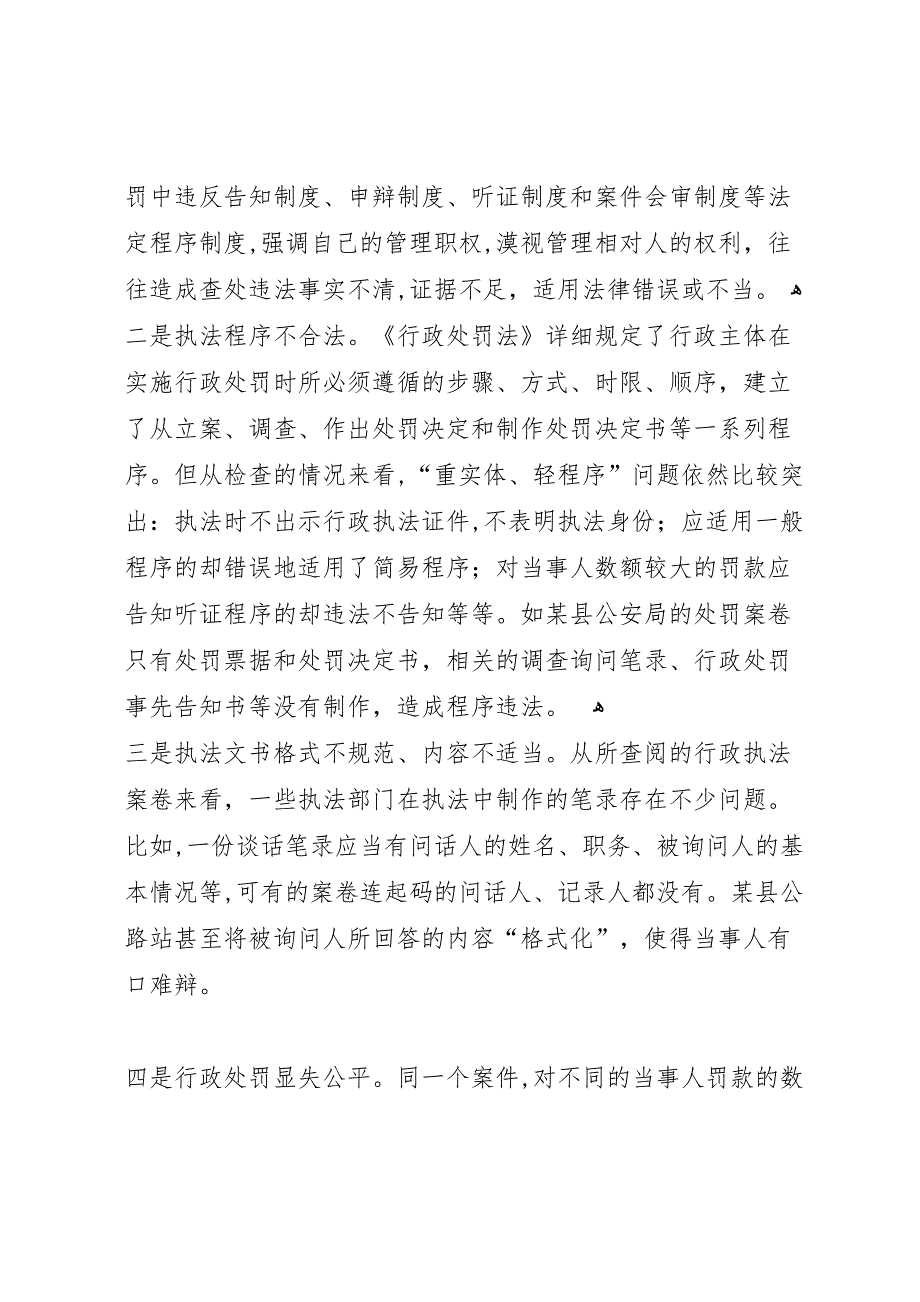 罚中违反告知制度、申辩制度、听证制度和案件会审制度等法
定程序制度,强调自己的管理职权,漠视管理相对人的权利，往
往造成查处违法事实不清,证据不足，适用法律错误或不当。 ﻫ
二是执法程序不合法。《行政处罚法》详细规定了行政主体在
实施行政处罚时所必须遵循的步骤、方式、时限、顺序，建立
了从立案、调查、作出处罚决定和制作处罚决定书等一系列程
序。但从检查的情况来看,“重实体、轻程序”问题依然比较突
出：执法时不出示行政执法证件,不表明执法身份；应适用一般
程序的却错误地适用了简易程序；对当事人数额较大的罚款应
告知听证程序的却违法不告知等等。如某县公安局的处罚案卷
只有处罚票据和处罚决定书，相关的调查询问笔录、行政处罚
事先告知书等没有制作，造成程序违法。 ﻫ
三是执法文书格式不规范、内容不适当。从所查阅的行政执法
案卷来看，一些执法部门在执法中制作的笔录存在不少问题。
比如,一份谈话笔录应当有问话人的姓名、职务、被询问人的基
本情况等,可有的案卷连起码的问话人、记录人都没有。某县公
路站甚至将被询问人所回答的内容“格式化”，使得当事人有
口难辩。
四是行政处罚显失公平。同一个案件,对不同的当事人罚款的数